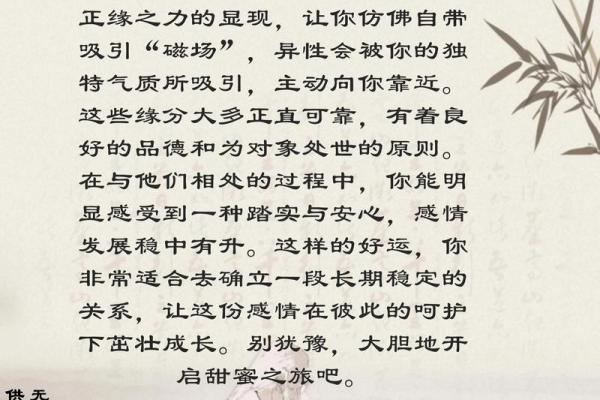 正缘之力的显现，让你仿佛自带
吸引“磁场”，异性会被你的独
特气质所吸引，主动向你靠近。
这些缘分大多正直可靠，有着良
好的品德和为对象处世的原则。
在与他们相处的过程中，你能明
显感受到一种踏实与安心，感情
发展稳中有升。这样的好运，你
非常适合去确立一段长期稳定的
关系，让这份感情在彼此的呵护
下茁壮成长。别犹豫，大胆地开
启甜蜜之旅吧。
供无